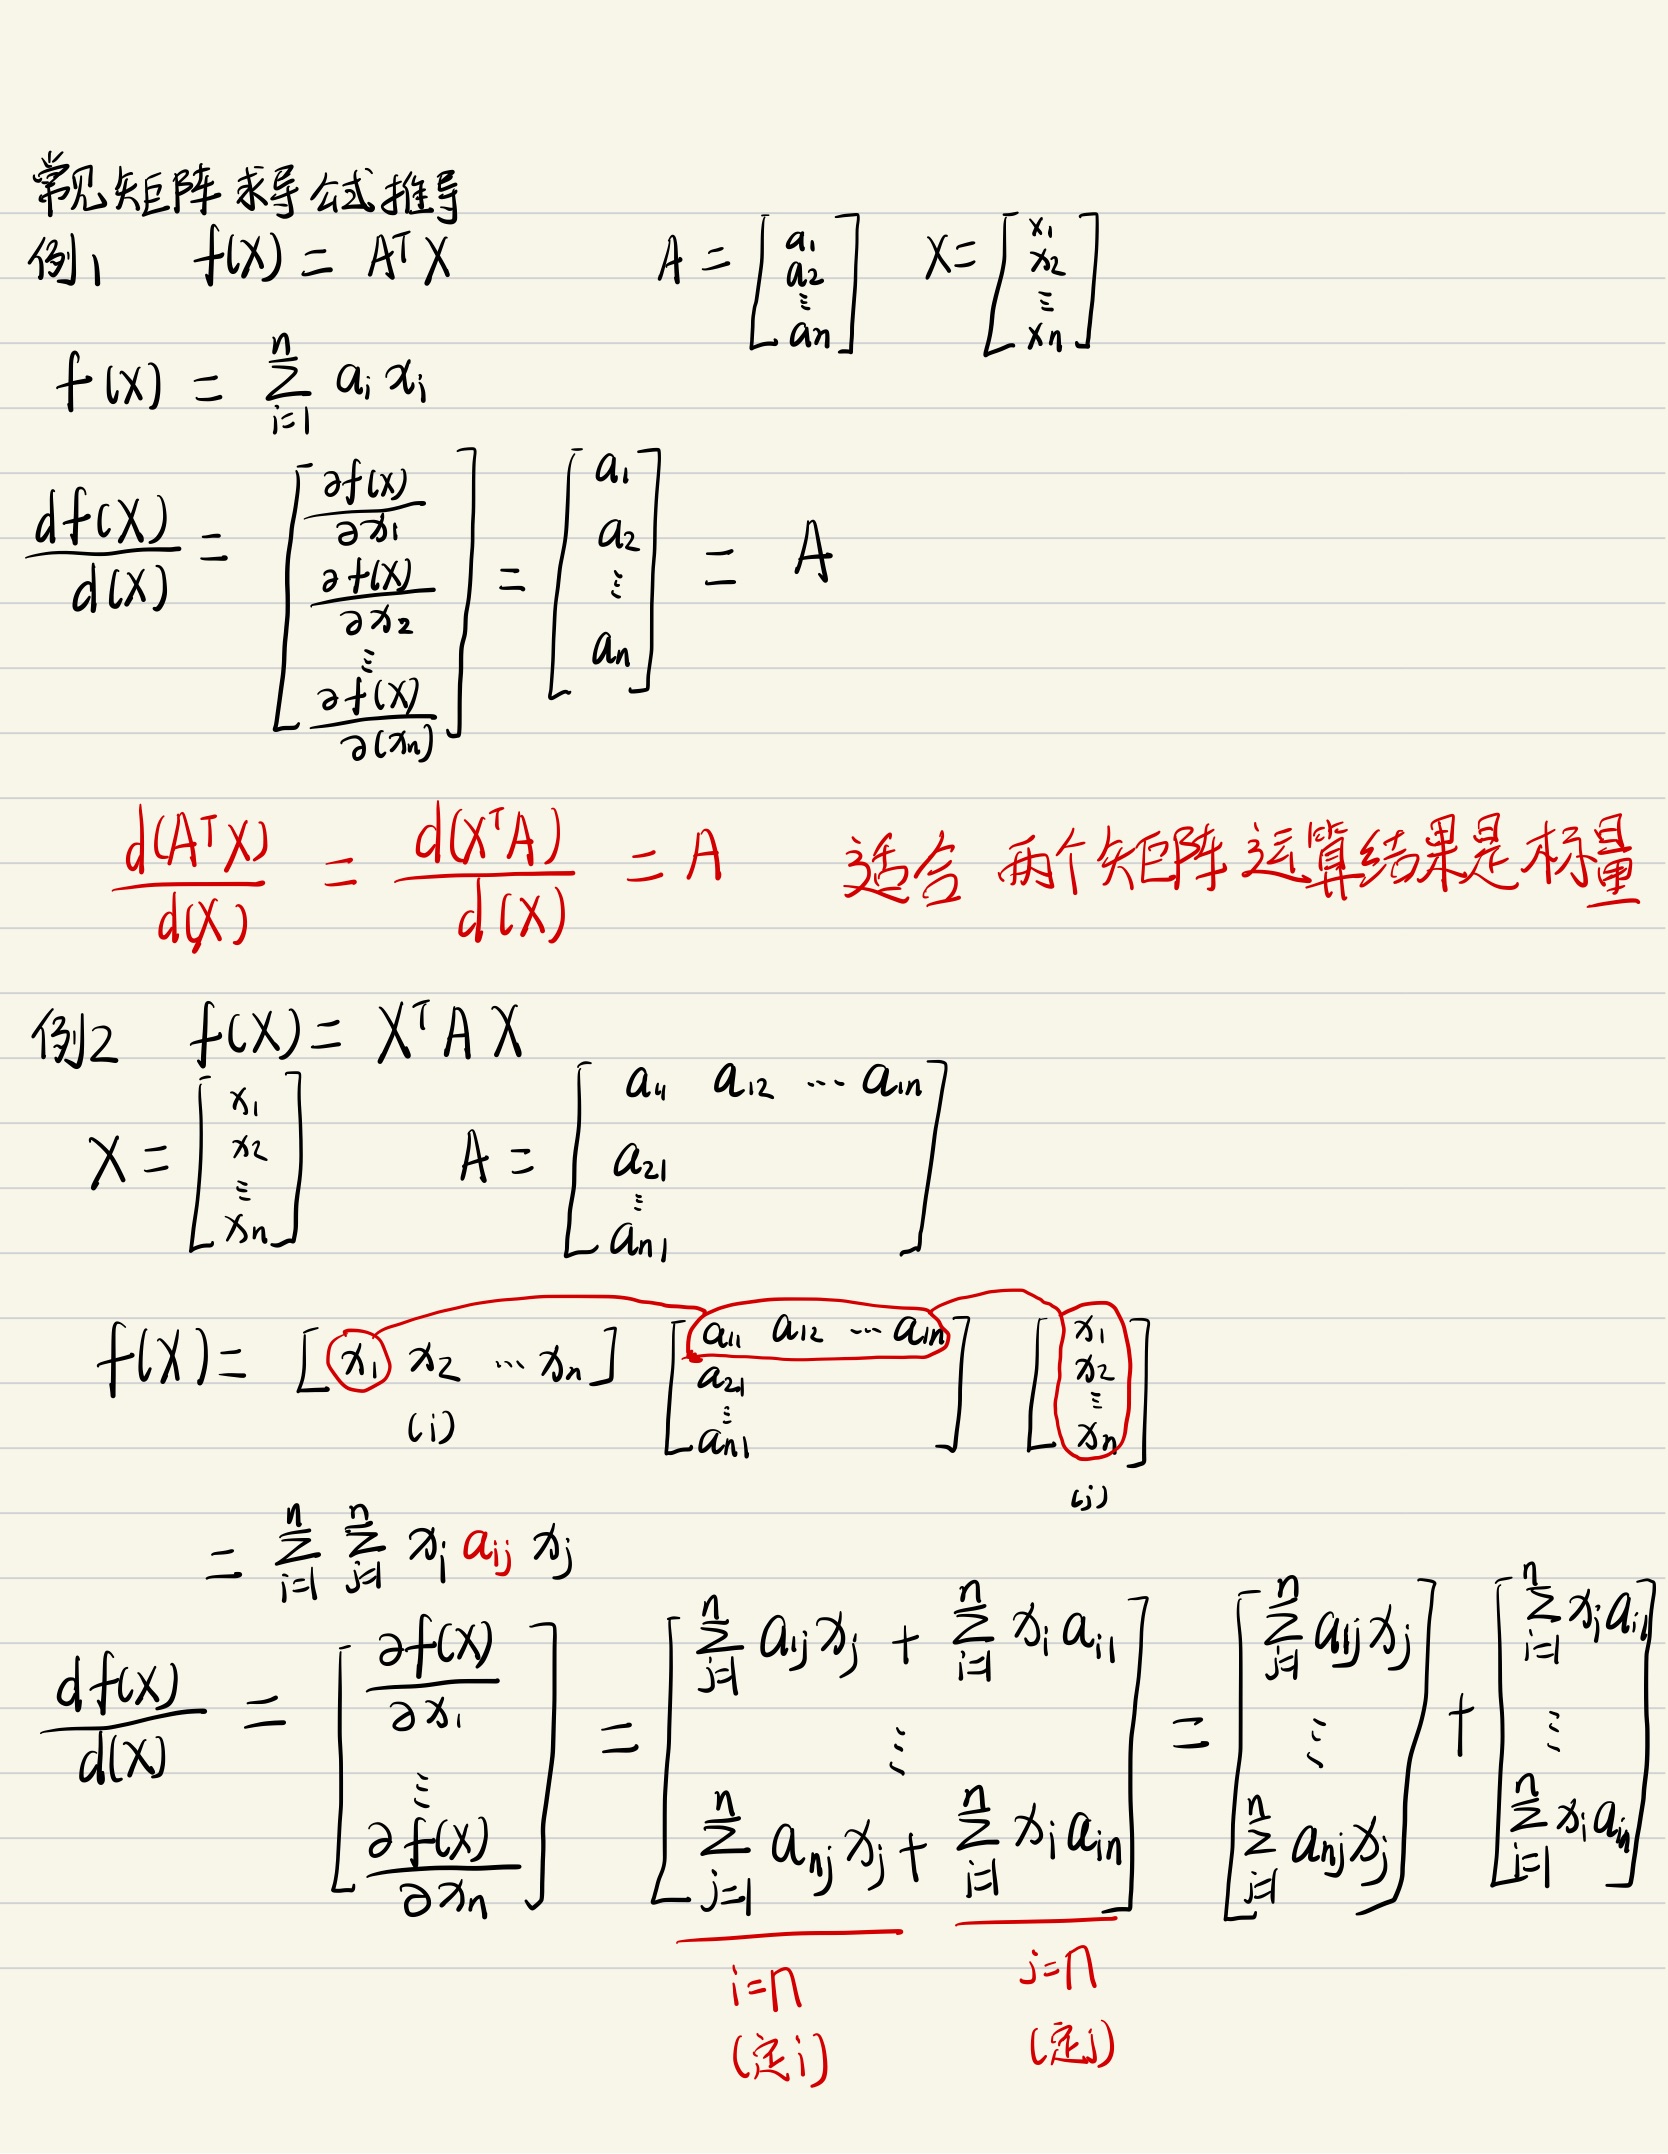 常见矩阵求导公式推导
例1 f(X) = AᵀX A = [a₁ a₂ ⋮ aₙ] X = [x₁ x₂ ⋮ xₙ]
f(X) = ∑ⁿᵢ₌₁ aᵢ xᵢ
df(X)/d(X) = [∂f(X)/∂x₁ ∂f(X)/∂x₂ ⋮ ∂f(X)/∂(xₙ)] = [a₁ a₂ ⋮ aₙ] = A
d(AᵀX)/d(X) = d(XᵀA)/d(X) = A 适合 两个矩阵运算结果是标量
例2 f(X) = XᵀAX
X = [x₁ x₂ ⋮ xₙ] A = [a₁₁ a₁₂ ⋯ a₁ₙ a₂₁ ⋮ aₙ₁]
f(X) = [x₁ x₂ ⋯ xₙ] [a₁₁ a₁₂ ⋯ a₁ₙ a₂₁ ⋮ aₙ₁] [x₁ x₂ ⋮ xₙ]
(i) (j)
= ∑ⁿᵢ₌₁ ∑ⁿⱼ₌₁ xᵢ aᵢⱼ xⱼ
df(X)/d(X) = [∂f(X)/∂x₁ ⋮ ∂f(X)/∂xₙ] = [∑ⁿⱼ₌₁ a₁ⱼxⱼ + ∑ⁿᵢ₌₁ xᵢaᵢ₁ ⋮ ∑ⁿⱼ₌₁ aₙⱼxⱼ + ∑ⁿᵢ₌₁ xᵢaᵢₙ] = [∑ⁿⱼ₌₁ a₁ⱼxⱼ ⋮ ∑ⁿⱼ₌₁ aₙⱼxⱼ] + [∑ⁿᵢ₌₁ xᵢaᵢ₁ ⋮ ∑ⁿᵢ₌₁ xᵢaᵢₙ]
i=n j=n
(定i) (定j)